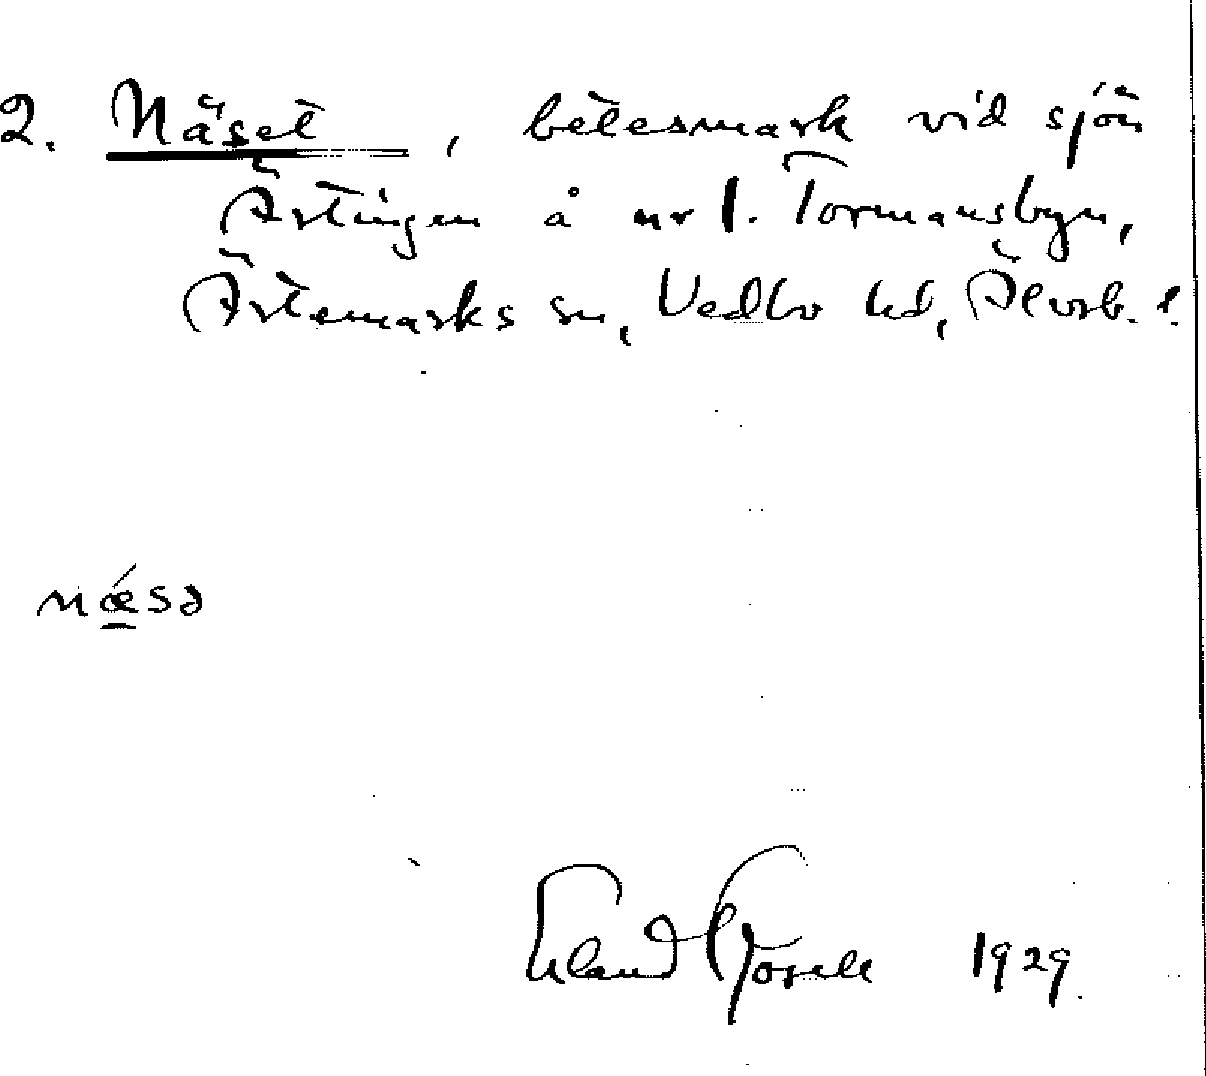 2. Näset, betesmark vid sjön
Ärtingen å nr 1. Tormansbyn,
Ärtemarks sn, Vedbo hd, Älvsb. l.
nǽ̱sə
Erland Hjorth 1929.